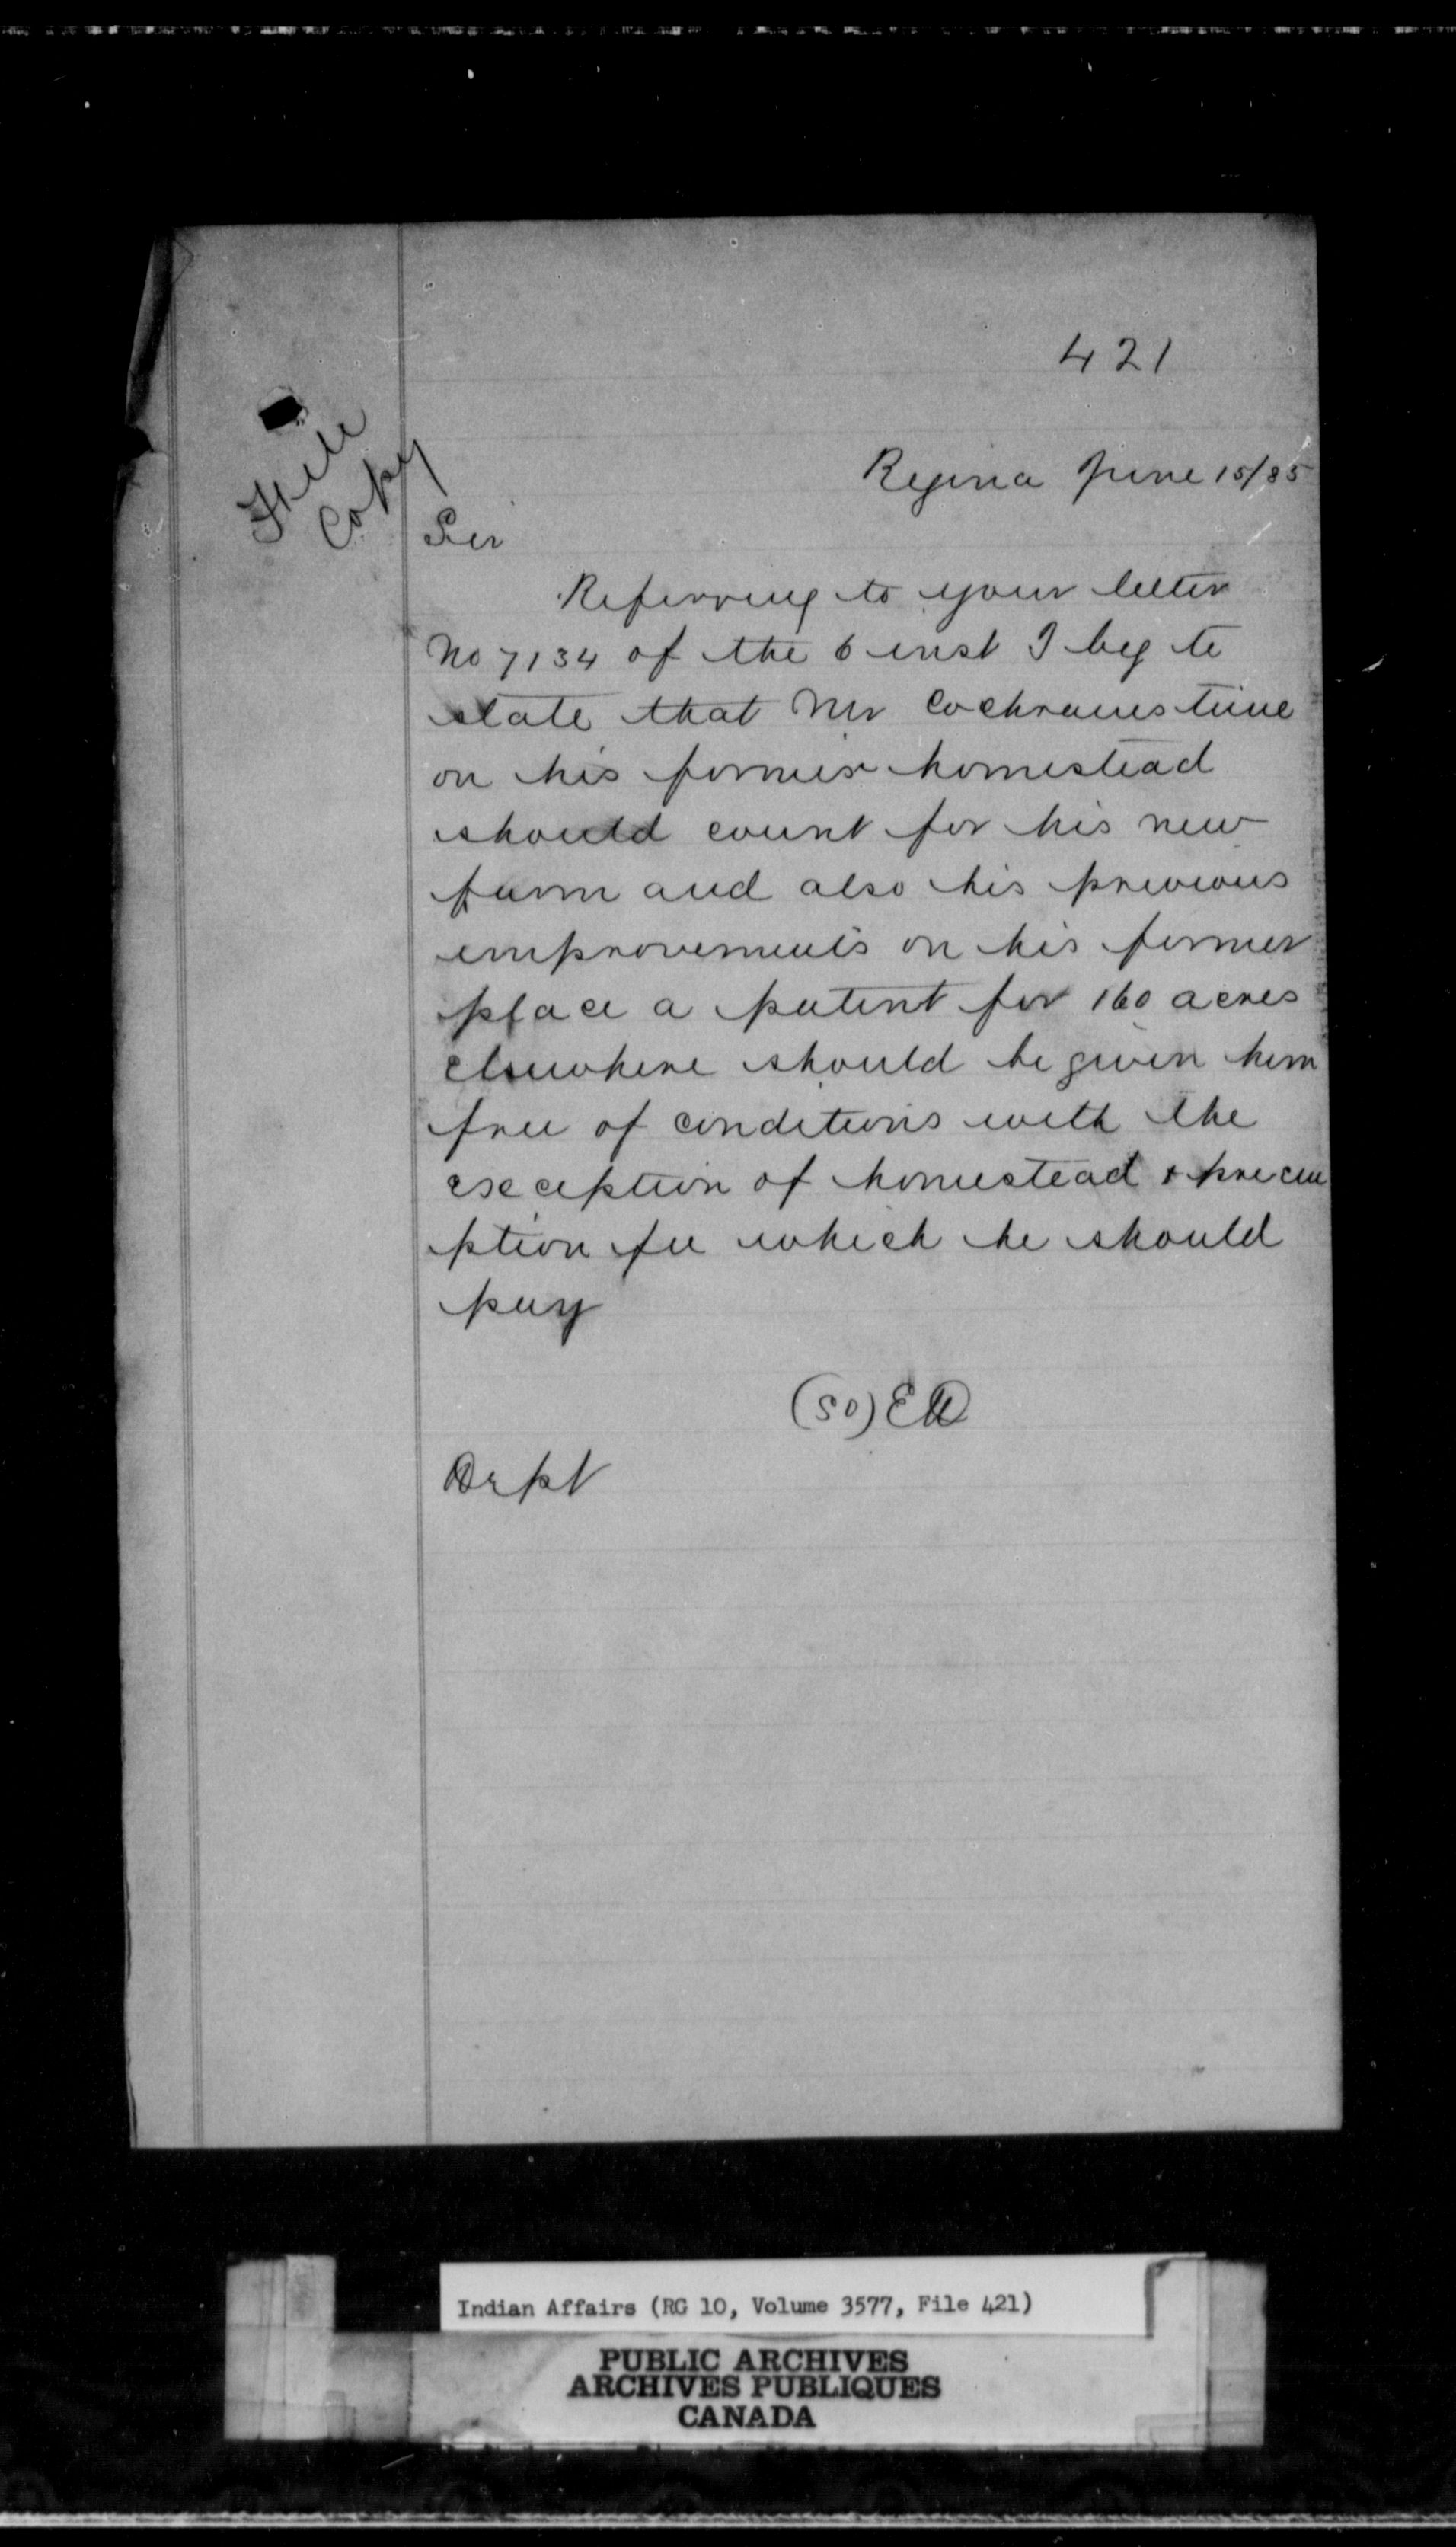 421
File
Copy
Regina June 15/85
Sir
Referring to your letter
No 7134 of the 6 inst I beg to
state that Mr Cochranes time
on his former homestead
should count for his new
farm and also his previous
improvements on his former
place a patent for 160 acres
elsewhere should be given him
free of conditions with the
exception of homestead & pre em
ption fee which he should
pay
(SD) ED
Dept
Indian Affairs (RG 10, Volume 3577, File 421)
PUBLIC ARCHIVES
ARCHIVES PUBLIQUES
CANADA